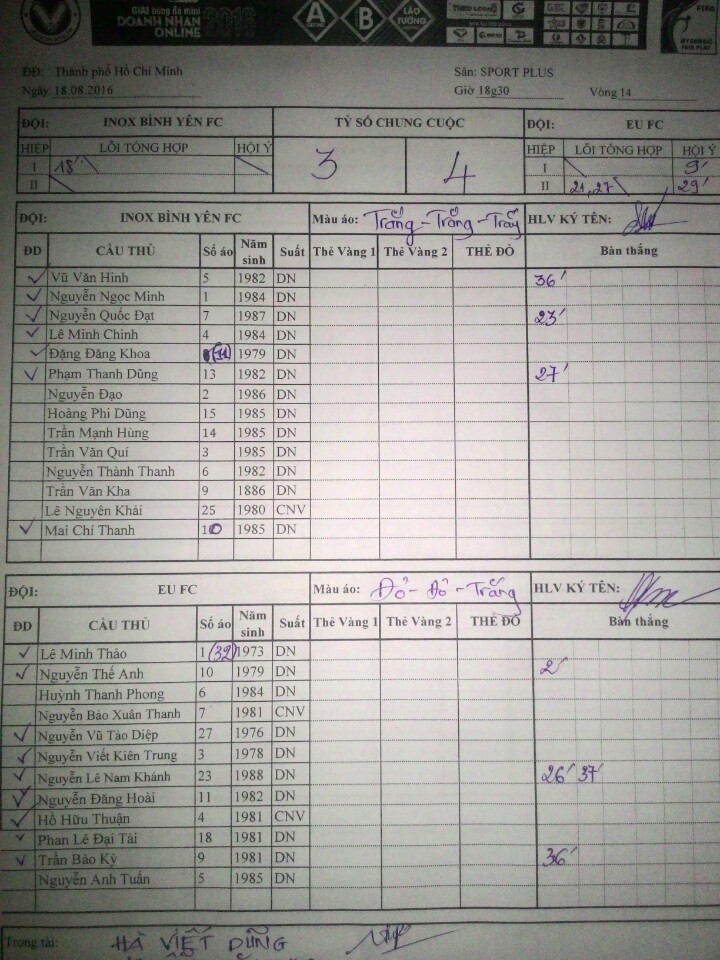 GIẢI bóng đá mini
DOANH NHÂN 2016
ONLINE
A B LÃO TƯỚNG
FIFA
ĐĐ: Thành phố Hồ Chí Minh Sân: SPORT PLUS
Ngày 18.08.2016 Giờ 18g30 Vòng 14
ĐỘI: INOX BÌNH YÊN FC TỶ SỐ CHUNG CUỘC ĐỘI: EU FC
HIỆP LỖI TỔNG HỢP HỘI Ý 3 4 HIỆP LỖI TỔNG HỢP HỘI Ý
I 18' I 9'
II II 21, 27 29'
ĐỘI: INOX BÌNH YÊN FC Màu áo: Trắng - Trắng - Trắng HLV KÝ TÊN:
ĐD CẦU THỦ Số áo Năm sinh Suất Thẻ Vàng 1 Thẻ Vàng 2 THẺ ĐỎ Bàn thắng
Vũ Văn Hinh 5 1982 DN 36'
Nguyễn Ngọc Minh 1 1984 DN
Nguyễn Quốc Đạt 7 1987 DN 23'
Lê Minh Chinh 4 1984 DN
Đặng Đăng Khoa (11) 1979 DN
Phạm Thanh Dũng 13 1982 DN 27'
Nguyễn Đạo 2 1986 DN
Hoàng Phi Dũng 15 1985 DN
Trần Mạnh Hùng 14 1985 DN
Trần Văn Quí 3 1985 DN
Nguyễn Thành Thanh 6 1982 DN
Trần Văn Kha 9 1886 DN
Lê Nguyên Khải 25 1980 CNV
Mai Chí Thanh 10 1985 DN
ĐỘI: EU FC Màu áo: Đỏ - Đỏ - Trắng HLV KÝ TÊN:
ĐD CẦU THỦ Số áo Năm sinh Suất Thẻ Vàng 1 Thẻ Vàng 2 THẺ ĐỎ Bàn thắng
Lê Minh Thảo 1 (32) 1973 DN
Nguyễn Thế Anh 10 1979 DN 2'
Huỳnh Thanh Phong 6 1984 DN
Nguyễn Bảo Xuân Thanh 7 1981 CNV
Nguyễn Vũ Tảo Diệp 27 1976 DN
Nguyễn Viết Kiên Trung 3 1978 DN
Nguyễn Lê Nam Khánh 23 1988 DN 26' 37'
Nguyễn Đăng Hoài 11 1982 DN
Hồ Hữu Thuận 4 1981 CNV
Phan Lê Đại Tài 18 1981 DN
Trần Bảo Kỳ 9 1981 DN 36'
Nguyễn Anh Tuấn 5 1985 DN
Trọng tài: HÀ VIẾT DŨNG